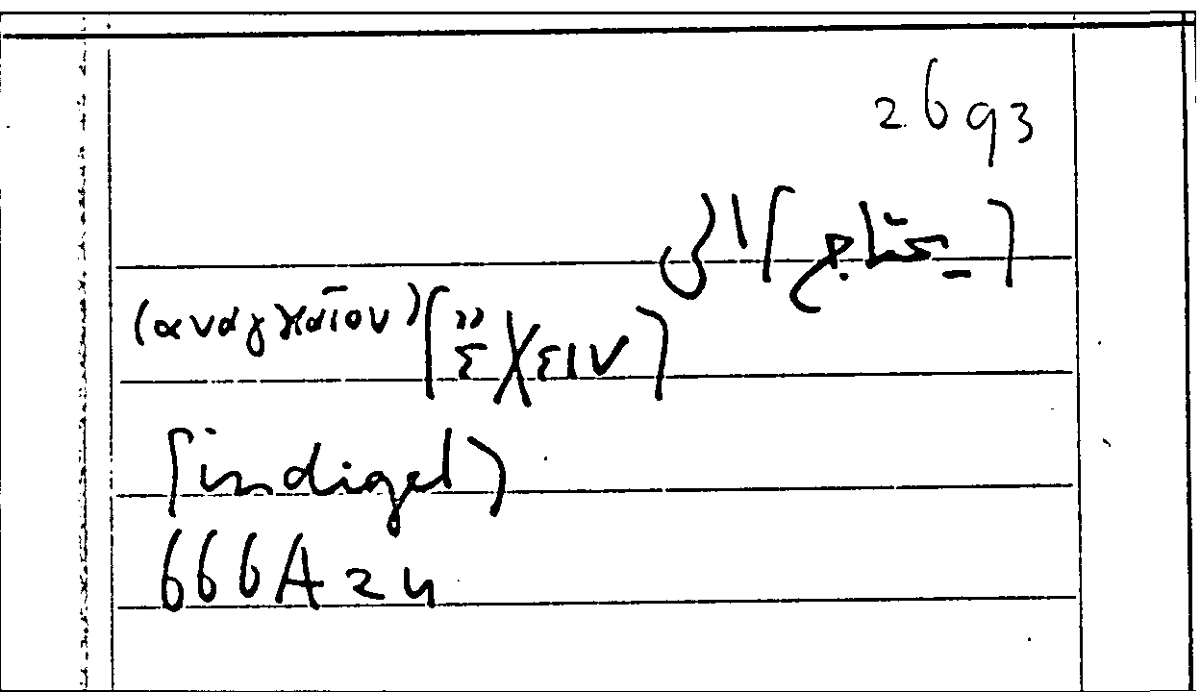 2693
[يحتاج] ان
(αναγκαῖον) [ἔχειν]
[indiget]
666A24